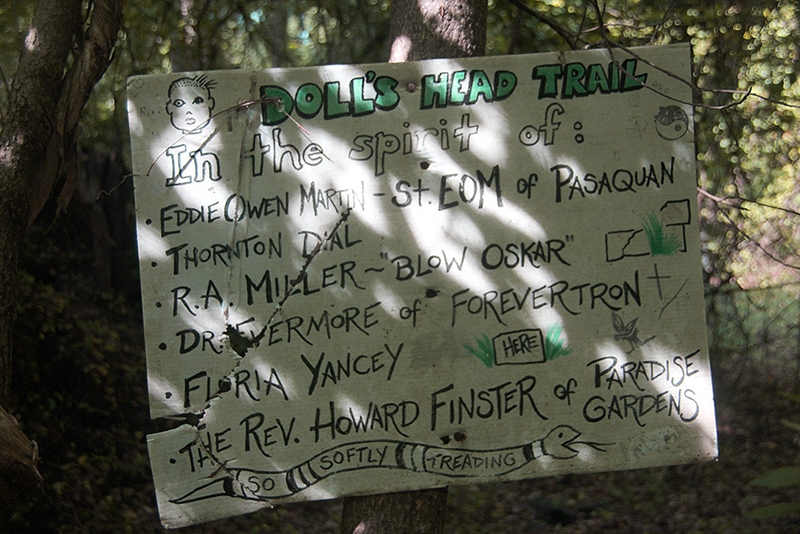 DOLL'S HEAD TRAIL
In the spirit of:
• EDDIE OWEN MARTIN - ST. EOM of PASAQUAN
• THORNTON DIAL
• R.A. MILLER ~ "BLOW OSKAR"
• DR. EVERMORE of FOREVERTRON
• FLORIA YANCEY
HERE
• THE REV. HOWARD FINSTER of PARADISE GARDENS
SO SOFTLY TREADING